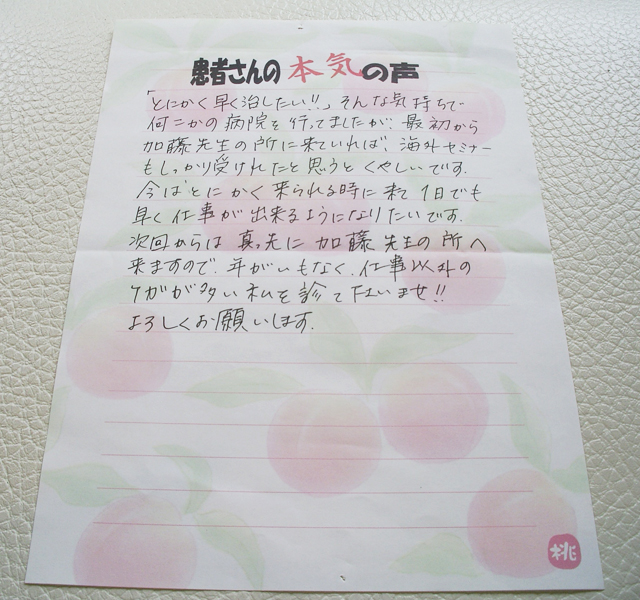 患者さんの本気の声
「とにかく早く治したい!!」そんな気持ちで
何こかの病院を行ってましたが、最初から
加藤先生の所に来ていれば、海外セミナー
もしっかり受けれたと思うとくやしいです.
今はとにかく来られる時に来て1日でも
早く仕事が出来るようになりたいです.
次回からは真っ先に加藤先生の所へ
来ますので、年がいもなく、仕事以外の
ケガが多い私を診て下さいませ!!
よろしくお願いします.
桃